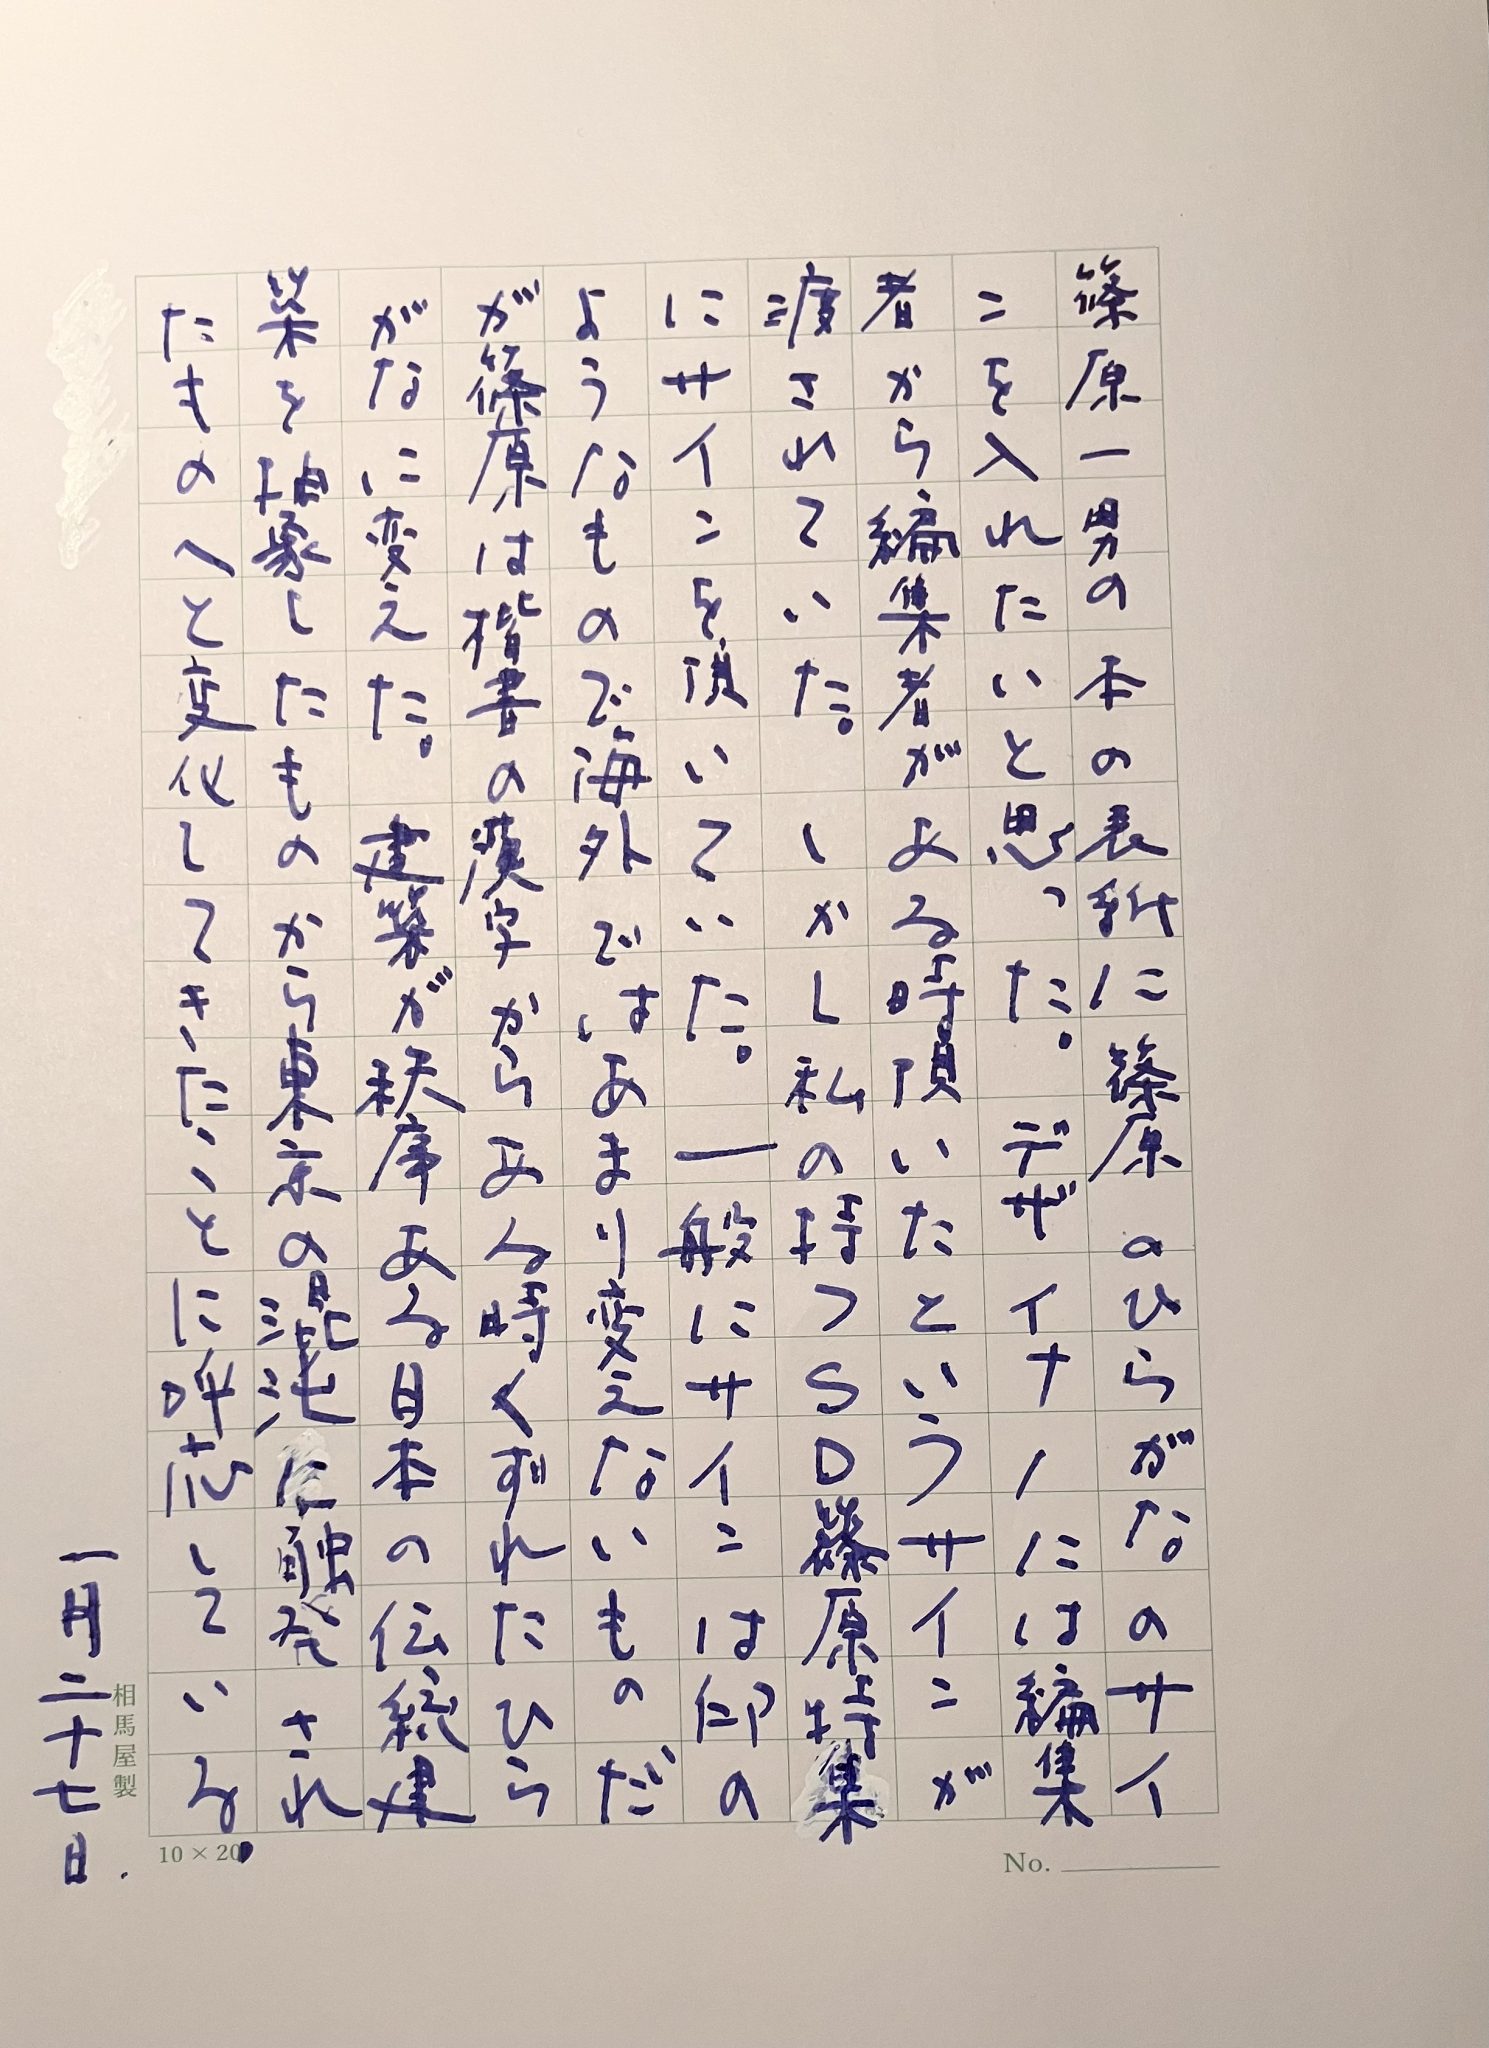 篠原一男の本の表紙に篠原のひらがなのサイ
ンを入れたいと思った。デザイナーには編集
者から編集者がある時頂いたというサインが
渡されていた。しかし私の持つSD篠原特集
にサインを頂いていた。一般にサインは印の
ようなもので海外ではあまり変えないものだ
が篠原は楷書の漢字からある時くずれたひら
がなに変えた。建築が秩序ある日本の伝統建
築を抽象したものから東京の混沌に触発され
たものへと変化してきたことに呼応している。
一月二十七日.
相馬屋製
10×20
No.